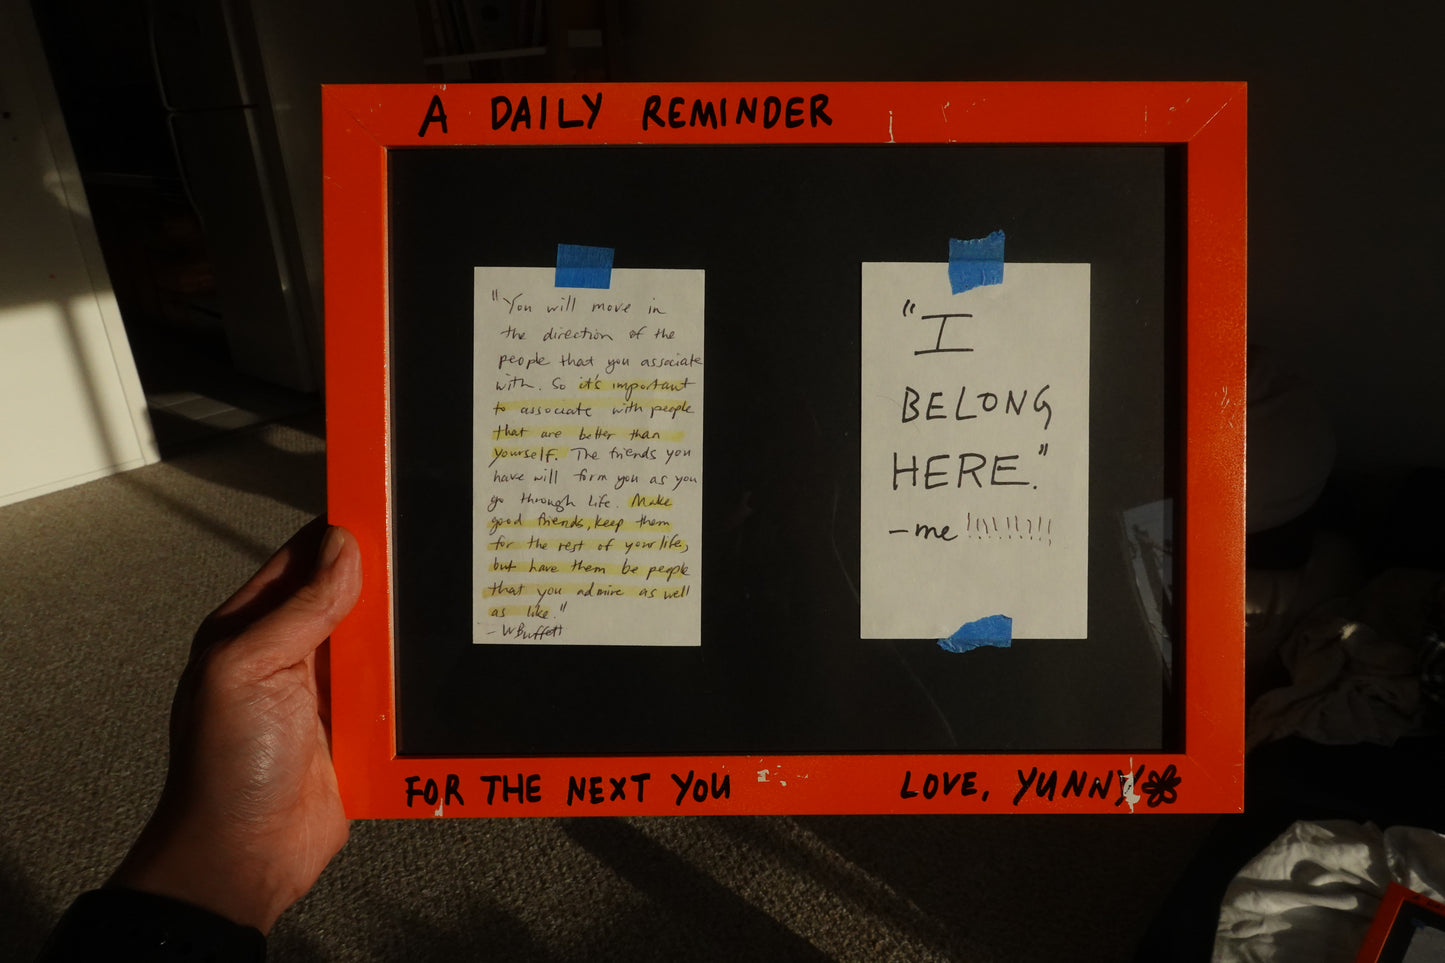 A DAILY REMINDER
"You will move in
the direction of the
people that you associate
with. So it's important
to associate with people
that are better than
yourself. The friends you
have will form you as you
go through life. Make
good friends, keep them
for the rest of your life,
but have them be people
that you admire as well
as like."
- WBuffett
"I
BELONG
HERE."
- me !!!!!!!!!
FOR THE NEXT YOU
LOVE, YUNNY